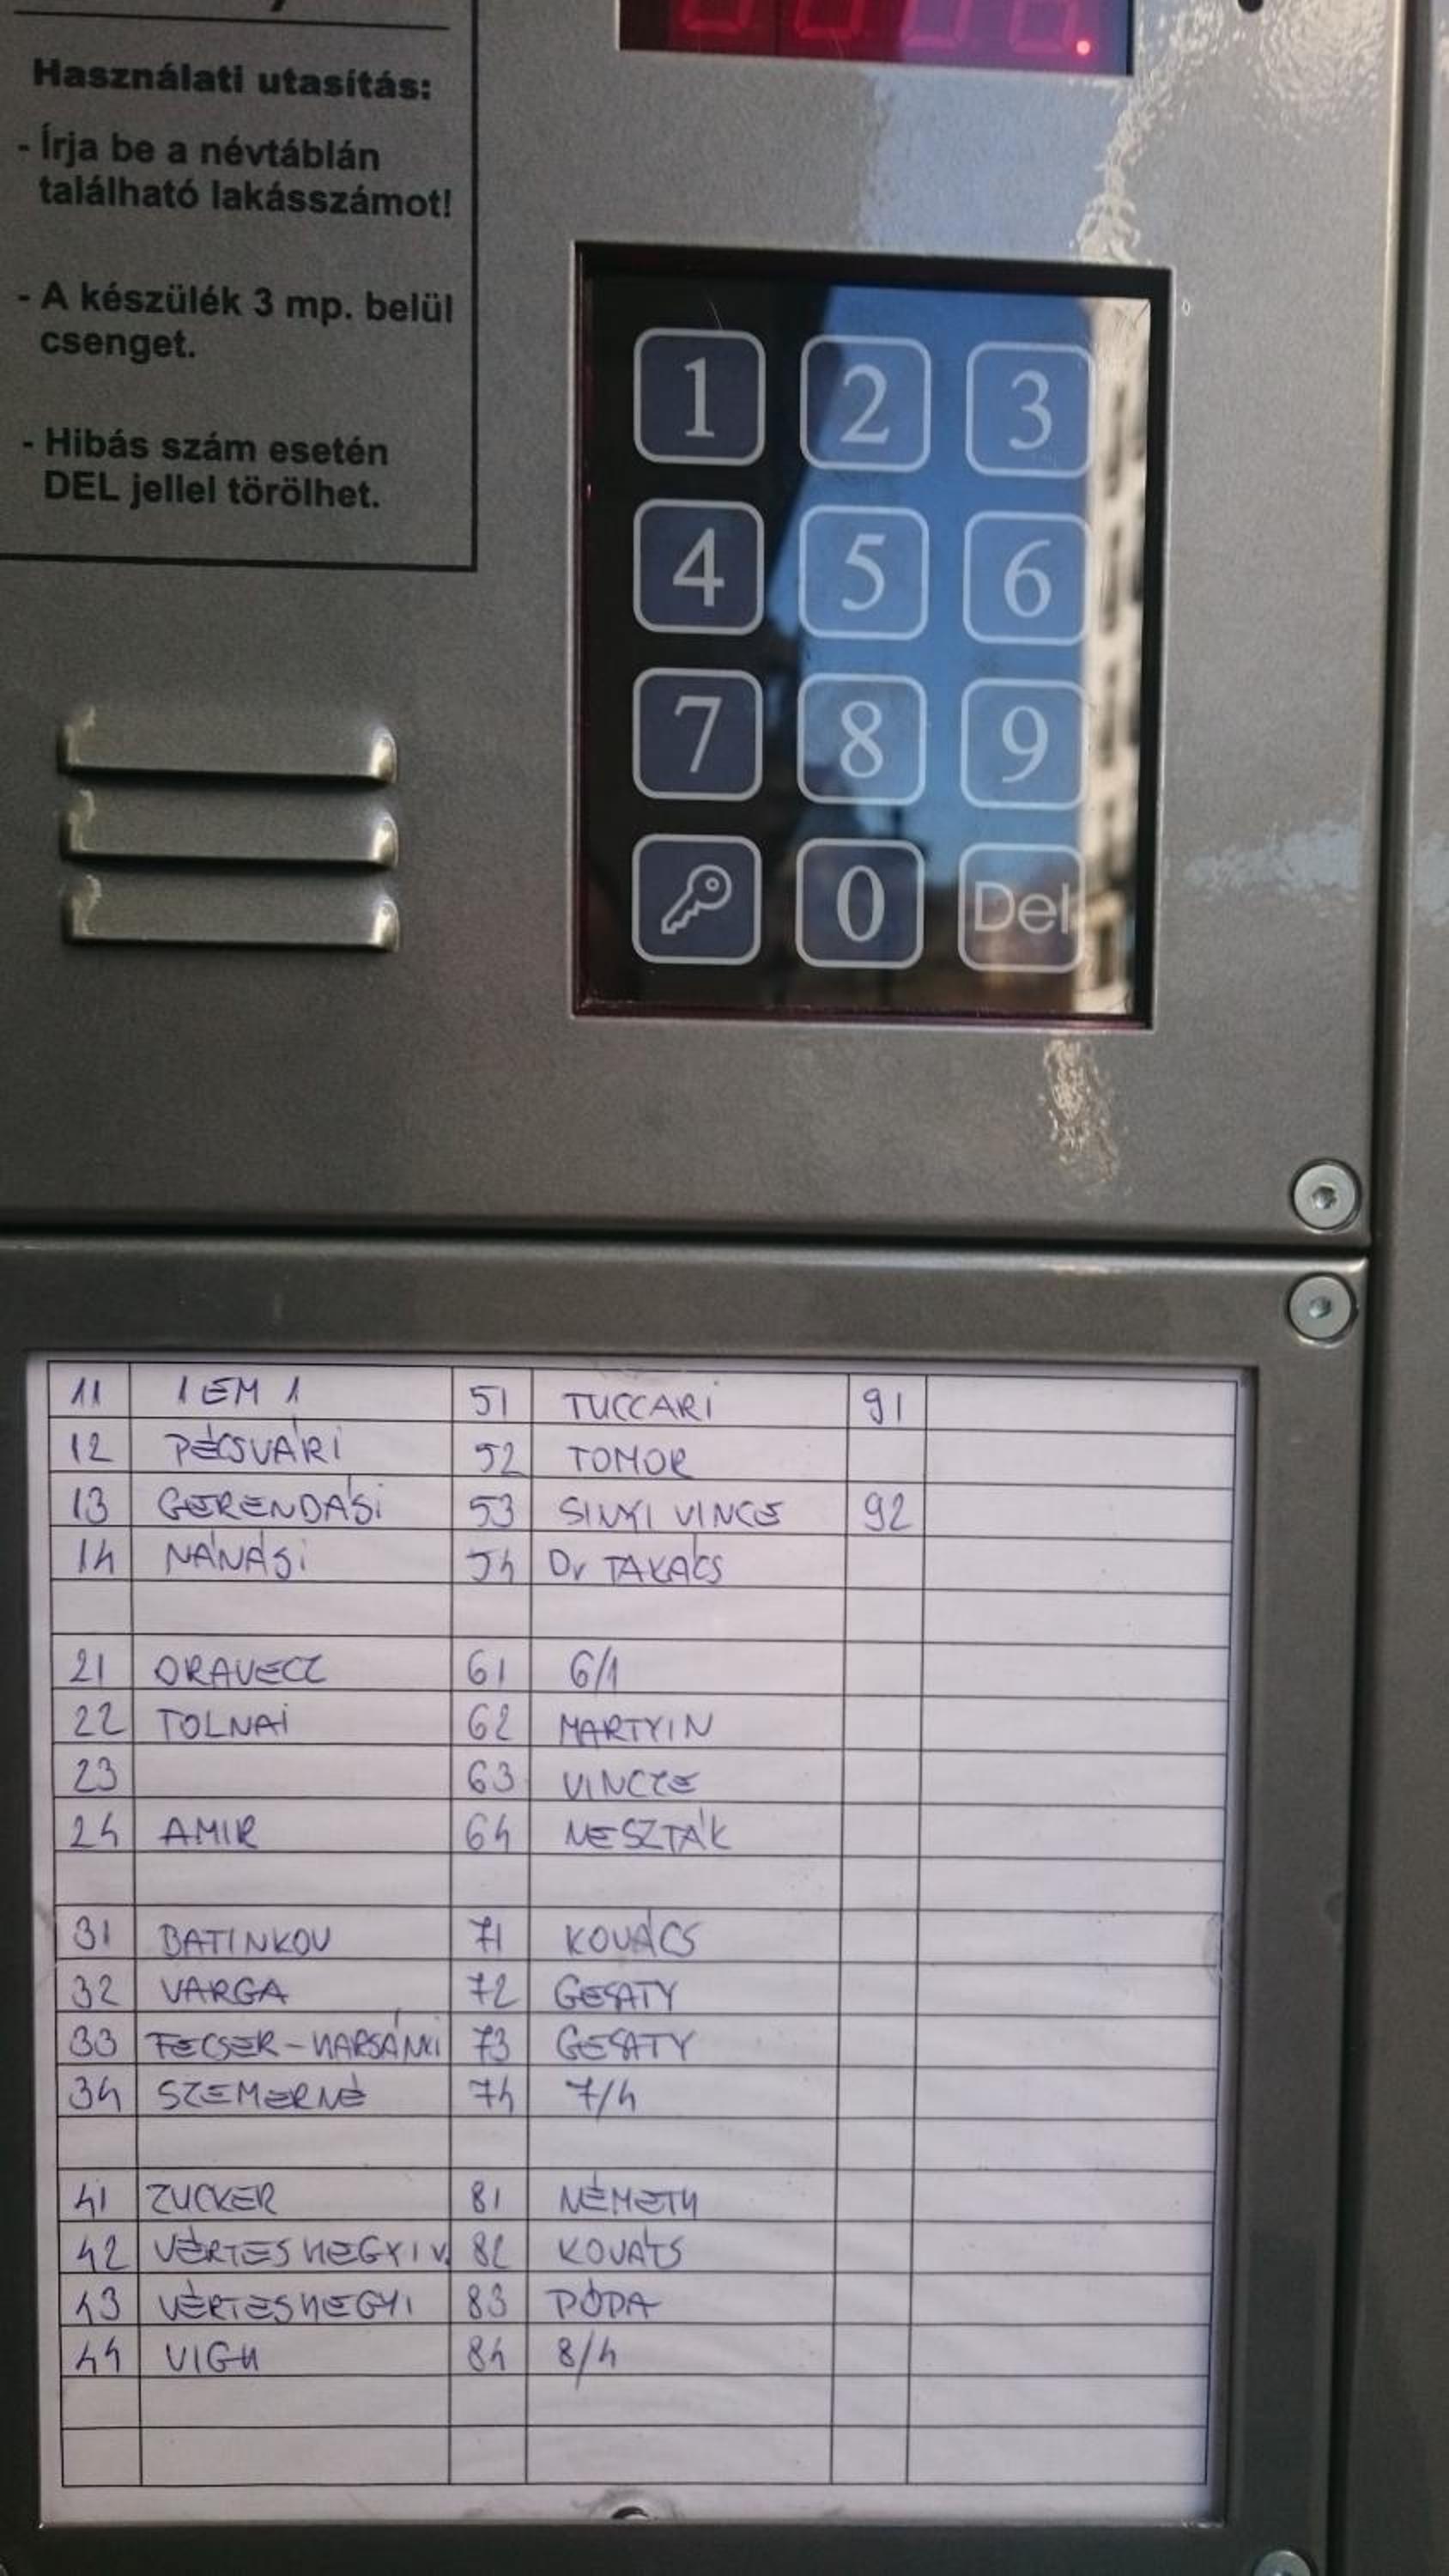 Használati utasítás:
- Írja be a névtáblán
található lakásszámot!
- A készülék 3 mp. belül
csenget.
- Hibás szám esetén
DEL jellel törölhet.
1 2 3
4 5 6
7 8 9
0 Del
11 1 EM 1 51 TUCCARI 91
12 PÉCSVÁRI 52 TOMOR
13 GERENDÁSI 53 SINYI VINCE 92
14 NÁNÁSI 54 Dr TAKÁCS
21 ORAVECZ 61 6/1
22 TOLNAI 62 MARTYIN
23 63 VINCZE
24 AMIR 64 NESZTÁK
31 BATINKOV 71 KOVÁCS
32 VARGA 72
33 FECSER-HARSÁNYI 73
34 SZEMERNÉ 74 7/4
41 ZUCKER 81 NÉMETH
42 VÉRTESHEGYI V. 82 KOVÁTS
43 VÉRTESHEGYI 83 PÓPA
44 VIGH 84 8/4